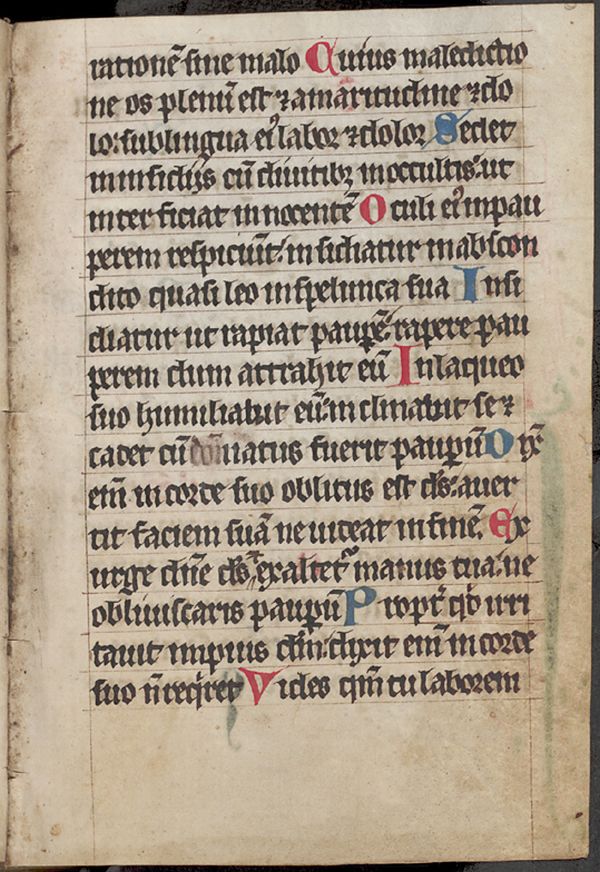 rationē sine malo Cuius maledictio
ne os plenū est ⁊ amaritudine ⁊ do
lo: sub lingua eiꝰ labor ⁊ dolor Sedet
in insidijs cū diuitibꝫ in occultis: ut
interficiat innocentē Oculi eiꝰ in pau
perem respiciūt: insidiatur in abscon
dito quasi leo in spelunca sua Insi
diatur ut rapiat paupē: rapere pau
perem dum attrahit eū In laqueo
suo humiliabit eū: inclinabit se ⁊
cadet cū dōīatus fuerit paupūm Dix̄
eīn in corde suo oblitus est dſ: auer
tit faciem suā ne uideat in finē. Ex
urge dn̄e ds exaltet manus tua: ne
obliuiscaris paupūm Propt̄ qd irri
tauit impius dm̄: dixit eīn in corde
suo n̄ reqret Vides qm̄ tu laborem